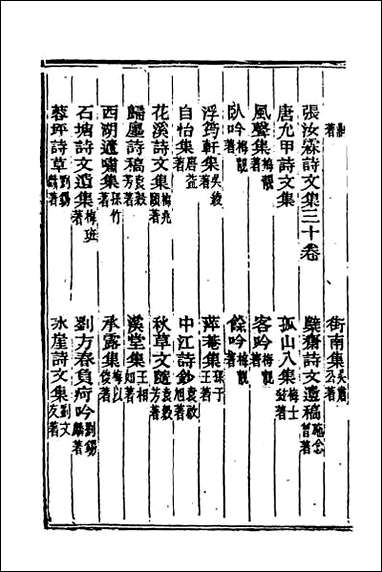 著
街南集吳肅公著
張汝霖詩文集三十卷
槩齋詩文遺稿施念曾著
唐允甲詩文集
孤山八集梅士著
風聲集梅觀著
客吟梅觀著
臥吟梅觀著
餘吟梅觀著
浮筠軒集吳 著
萍菴集孫王著
自怡集唐益著
中江詩鈔袁啟旭著
花溪詩文集梅兆頤著
秋草文隨袁啟芳著
歸塵詩稿袁啟芳著
漢堂集王相如著
西湖遊嘯集孫竹著
承露集梅以俊著
石塘詩文遺集梅班著
劉方春負疴吟劉錫 著
蓉坪詩草劉錫 著
氷崖詩文集劉文友著